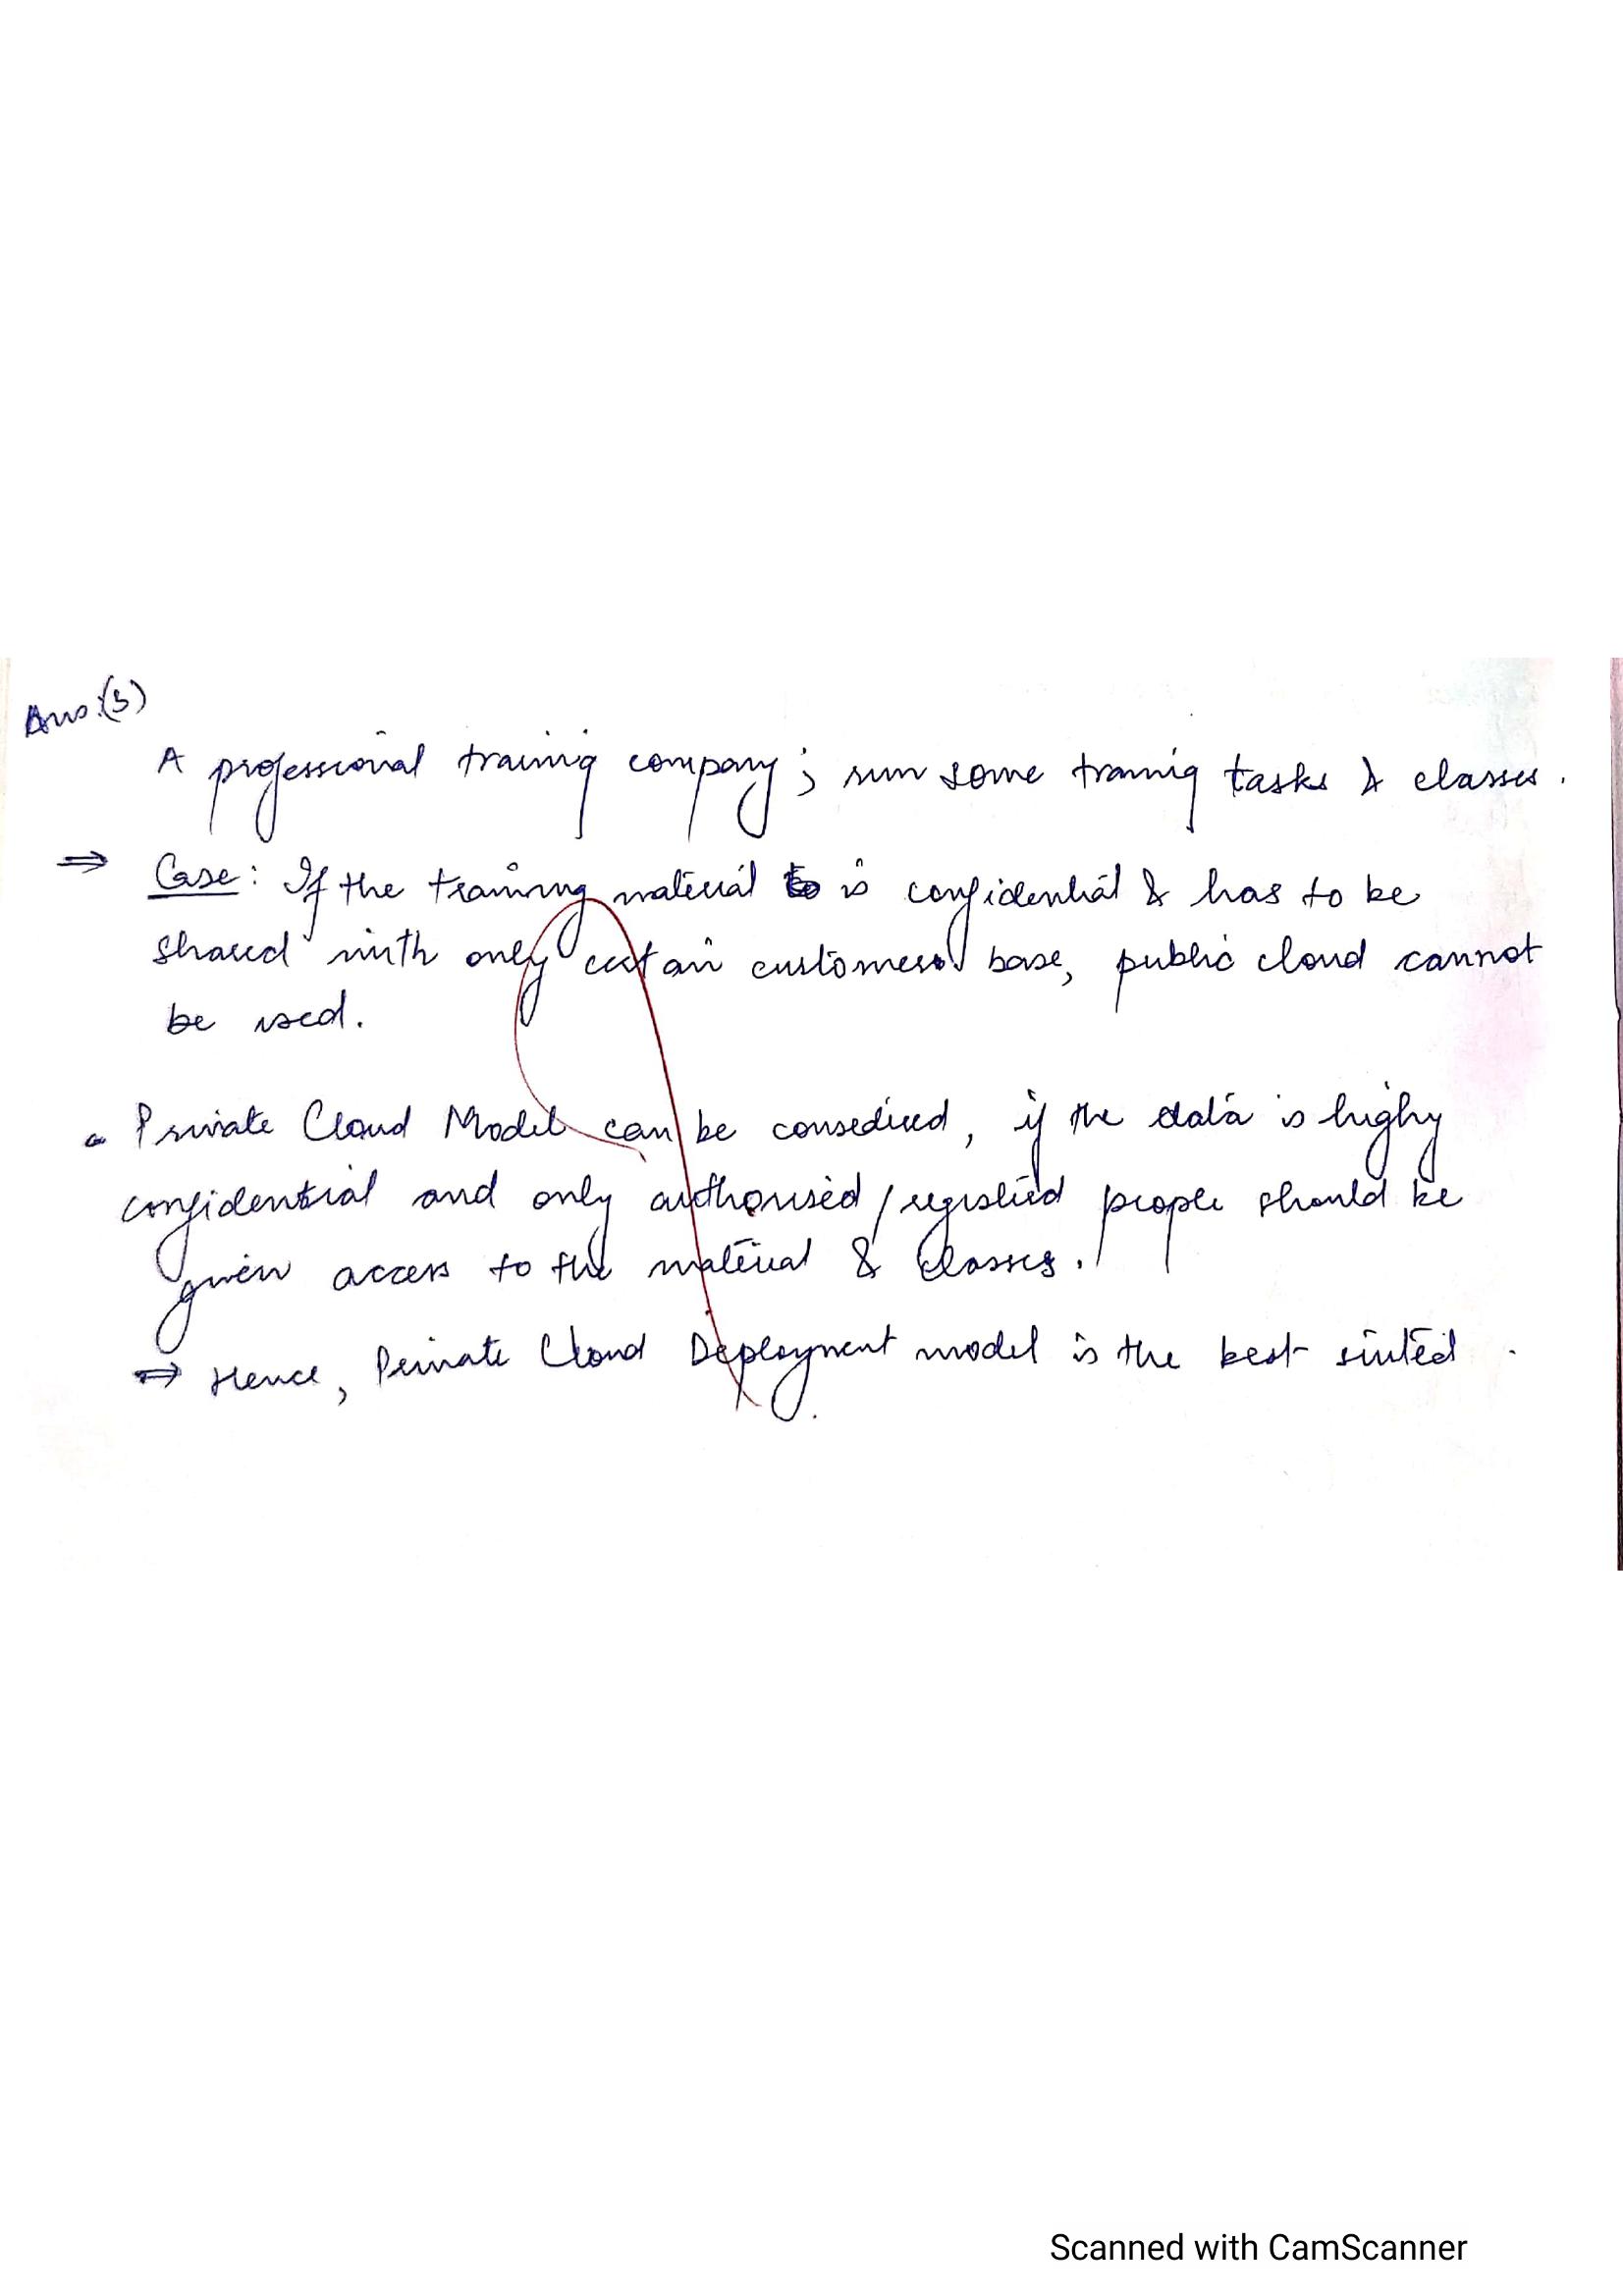 Ans:(3)
A professional training company; run some training tasks & classes.
⇒ Case: If the training material is confidential & has to be
shared with only certain customers base, public cloud cannot
be used.
Private Cloud Model can be consedired, if the data is highy
confidential and only authorised/registired people should be
given access to the material & Classes.
⇒ Hence, Private Cloud Deployment model is the best suited.
Scanned with CamScanner